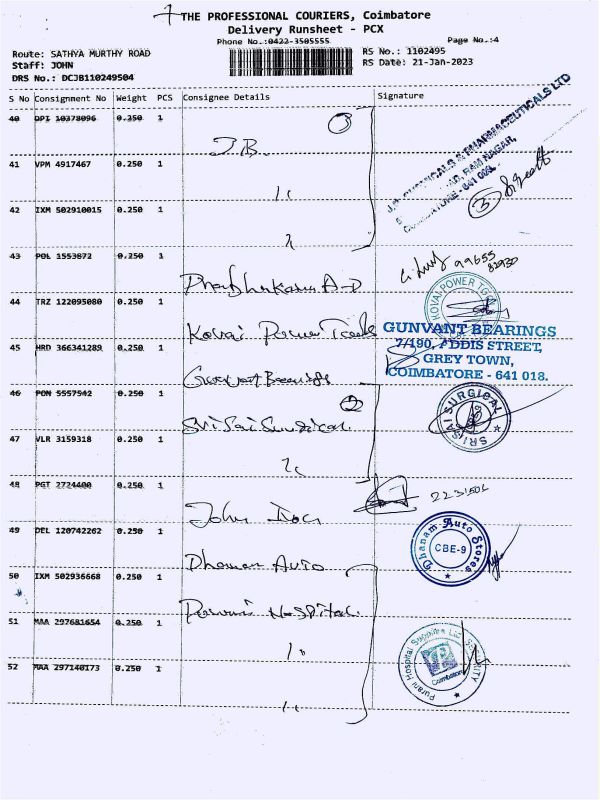 THE PROFESSIONAL COURIERS, Coimbatore
Delivery Runsheet - PCX
Phone No.:0422-3505555
Page No.:4
Route: SATHYA MURTHY ROAD
RS No.: 1102495
Staff: JOHN
RS Date: 21-Jan-2023
DRS No.: DCJB110249504
S No Consignment No Weight PCS Consignee Details Signature
40 DPI 10378096 0.250 1
3
J.B.
41 VPM 4917467 0.250 1
42 IXM 502910015 0.250 1
3
43 POL 1553872 0.250 1
Prabhakaran A-D
99655
82930
44 TRZ 122095080 0.250 1
Kovai Power Tools
KOVAI POWER
45 HRD 366341289 0.250 1
Gunvant Bearings
GUNVANT BEARINGS
7/190, ADDIS STREET,
GREY TOWN,
COIMBATORE - 641 018.
46 PON 5557942 0.250 1
2
Sri Sai Surgical
SRI SAI SURGICAL
47 VLR 3159318 0.250 1
48 PGT 2724400 0.250 1
John
49 DEL 120742262 0.250 1
Dhanam Auto
Dhanam Auto Stores
CBE-9
50 IXM 502936668 0.250 1
Purani Hospital
51 MAA 297681654 0.250 1
Purani Hospital Supplies
SECURITY
Coimbatore
52 MAA 297140173 0.250 1